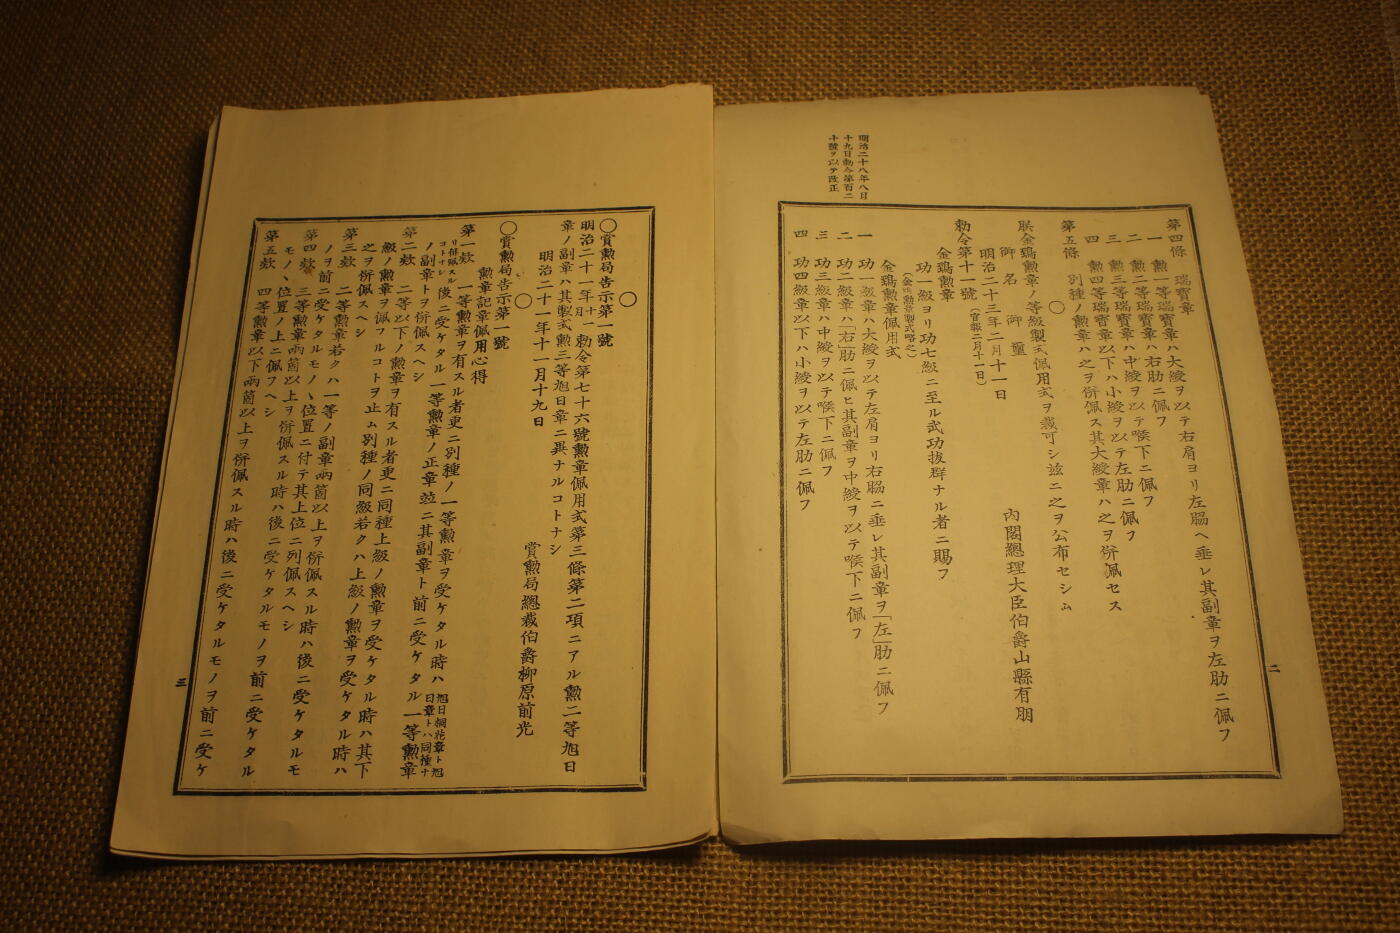 明治二十八年八月
十九日勅令第百二
十號ヲ以テ改正
第四條　瑞寶章
一　勲一等瑞寶章ハ大綬ヲ以テ右肩ヨリ左脇ヘ垂レ其副章ヲ左肋ニ佩フ
二　勲二等瑞寶章ハ右肋ニ佩フ
三　勲三等瑞寶章ハ中綬ヲ以テ喉下ニ佩フ
四　勲四等瑞寶章以下ハ小綬ヲ以テ左肋ニ佩フ
第五條　別種ノ勲章ハ之ヲ併佩ス其大綬章ハ之ヲ併佩セス
〇
朕金鵄勲章ノ等級製式佩用式ヲ裁可シ茲ニ之ヲ公布セシム
御名　御璽
明治二十三年二月十一日
內閣總理大臣伯爵山縣有朋
勅令第十一號（官報二月十一日）
金鵄勲章
功一級ヨリ功七級ニ至ル武功拔群ナル者ニ賜フ
（金鵄勲章製式略之）
金鵄勲章佩用式
一　功一級章ハ大綬ヲ以テ左肩ヨリ右脇ニ垂レ其副章ヲ「左」肋ニ佩フ
二　功二級章ハ「右」肋ニ佩ヒ其副章ヲ中綬ヲ以テ喉下ニ佩フ
三　功三級章ハ中綬ヲ以テ喉下ニ佩フ
四　功四級章以下ハ小綬ヲ以テ左肋ニ佩フ
二
〇
〇賞勲局告示第一號
明治二十一年十一月勅令第七十六號勲章佩用式第三條第二項ニアル勲二等旭日
章ノ副章ハ其製式勲三等旭日章ニ異ナルコトナシ
明治二十一年十一月十九日
賞勲局總裁伯爵柳原前光
〇
〇賞勲局告示第一號
勲章記章佩用心得
第一款　一等勲章ヲ有スル者更ニ別種ノ一等勲章ヲ受ケタル時ハ旭日桐花章ト旭日章トハ同種ナ
リ併佩スルコトナシ後ニ受ケタル一等勲章ノ正章竝ニ其副章ト前ニ受ケタル一等勲章
ノ副章トヲ併佩スヘシ
第二款　二等以下ノ勲章ヲ有スル者更ニ同種上級ノ勲章ヲ受ケタル時ハ其下
級ノ勲章ヲ佩フルコトヲ止ム別種ノ同級若クハ上級ノ勲章ヲ受ケタル時ハ
之ヲ併佩スヘシ
第三款　二等勲章若クハ一等ノ副章兩箇以上ヲ併佩スル時ハ後ニ受ケタルモ
ノヲ前ニ受ケタルモノヽ位置ニ付テ其上位ニ列佩スヘシ
第四款　三等勲章兩箇以上ヲ併佩スル時ハ後ニ受ケタルモノヲ前ニ受ケタル
モノヽ位置ノ上ニ佩フヘシ
第五款　四等勲章以下兩箇以上ヲ併佩スル時ハ後ニ受ケタルモノヲ前ニ受ケ
三